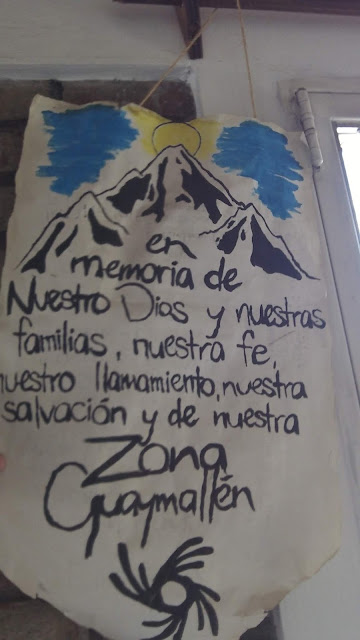 en
memoria de
Nuestro Dios y nuestras
familias, nuestra fe,
nuestro llamamiento, nuestra
salvación y de nuestra
Zona
Guaymallén